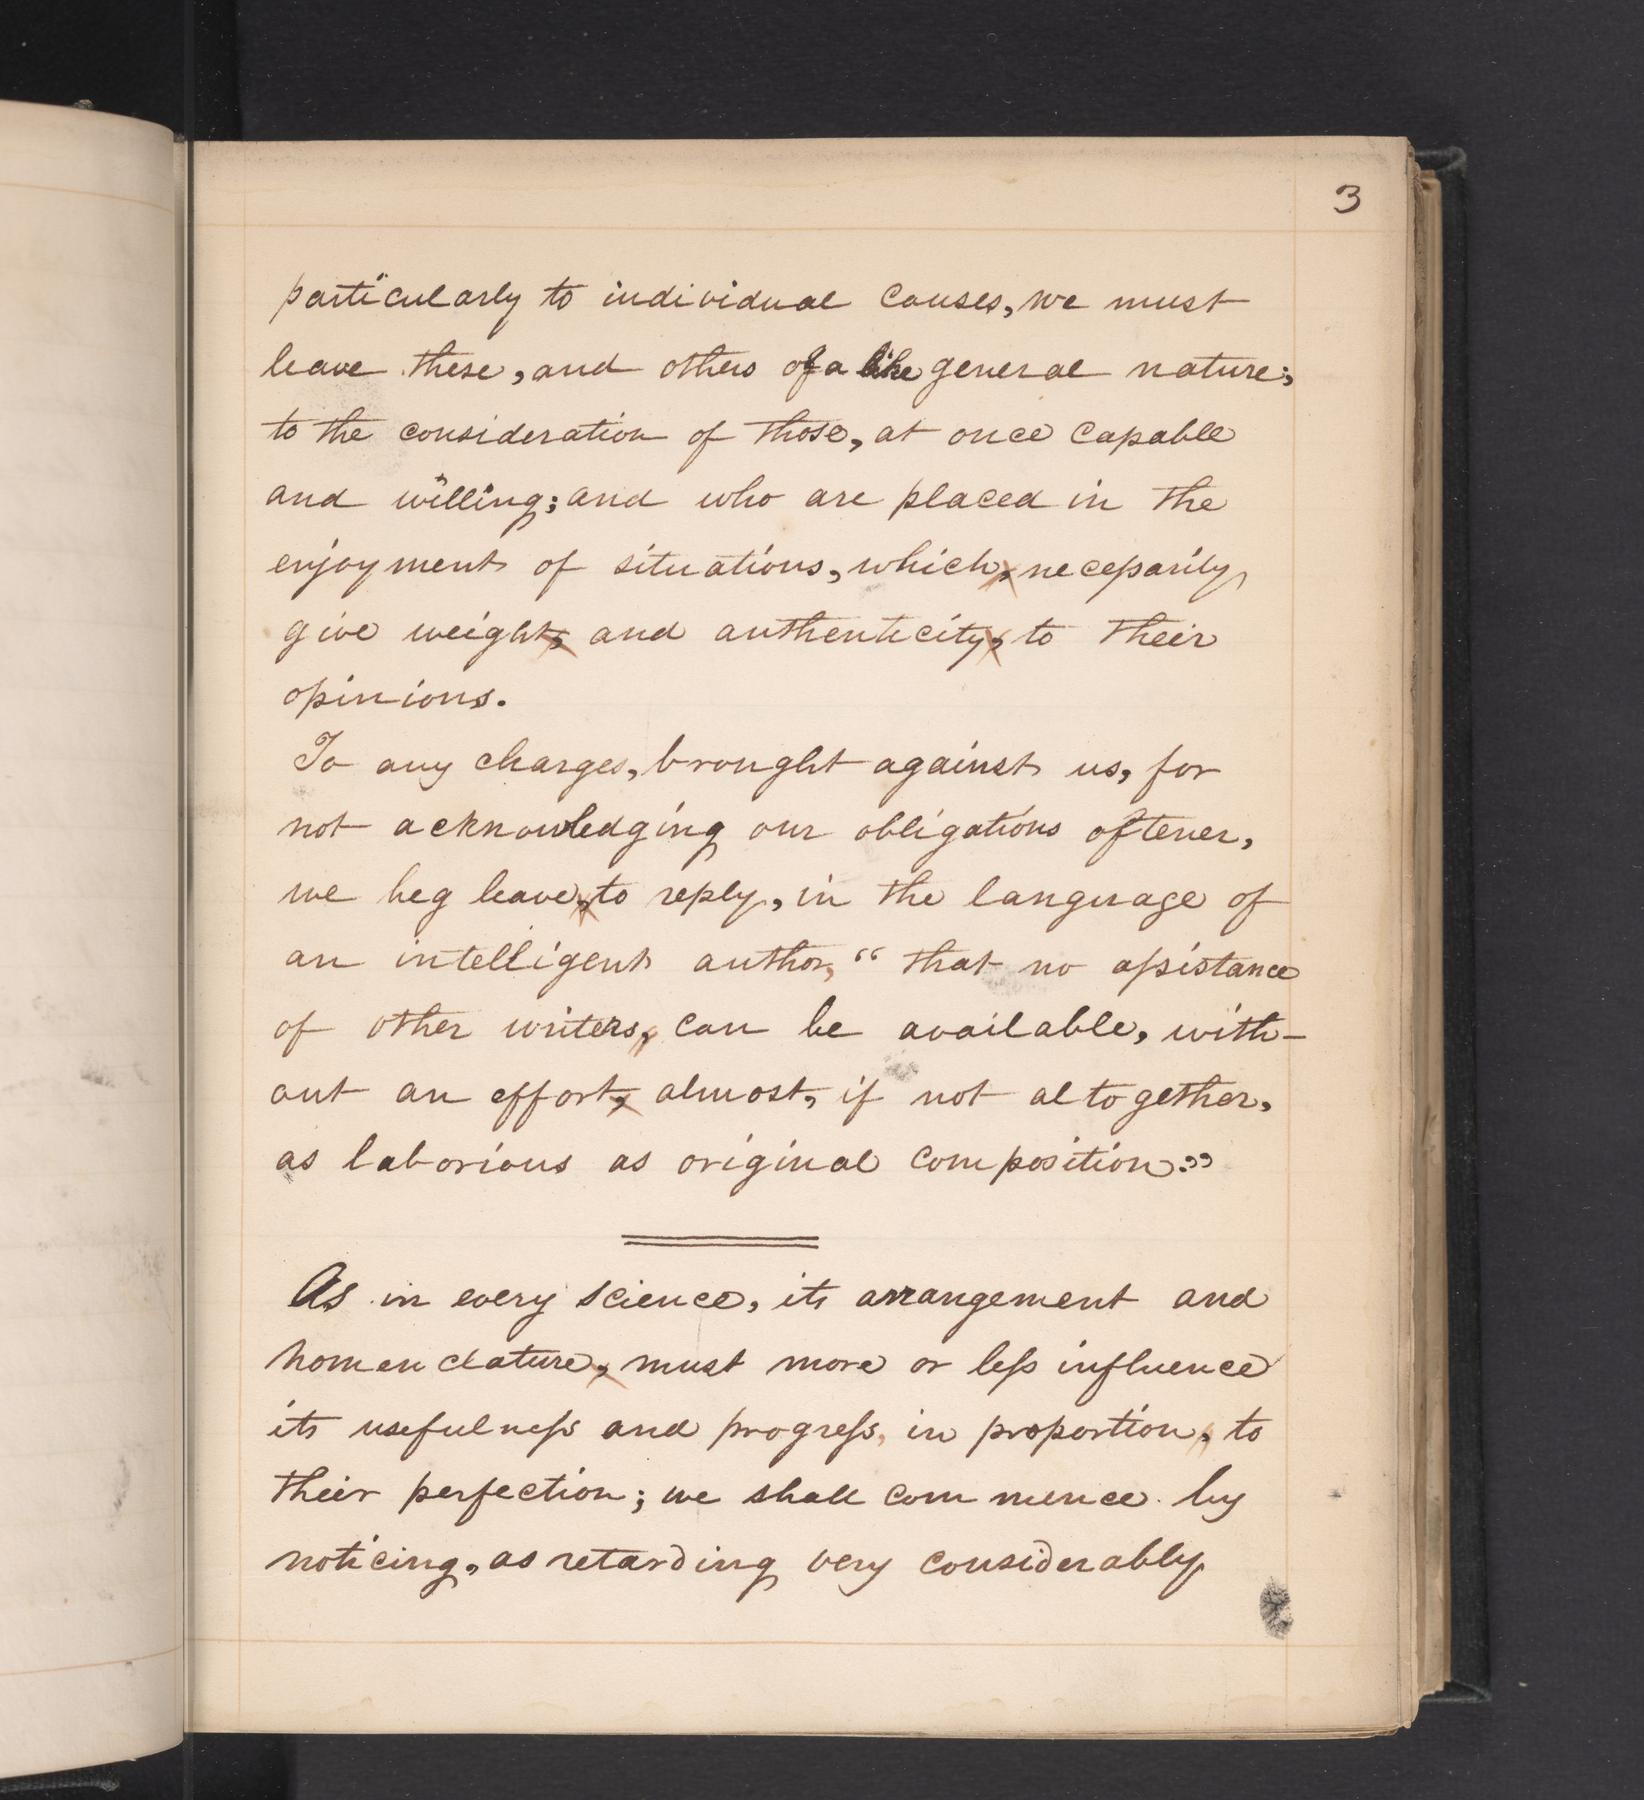 3
particularly to individual causes, we must
leave these, and others of a like general nature;
to the consideration of those, at once capable
and willing; and who are placed in the
enjoyment of situations, which, necessarily
give weight, and authenticity, to their
opinions.
To any charges, brought against us, for
not acknowledging our obligations oftener,
we beg leave, to reply, in the language of
an intelligent author, “that no assistance
of other writers, can be available, with-
out an effort, almost, if not altogether,
as laborious as original composition.”
As in every science, its arrangement and
nomenclature, must more or less influence
its usefulness and progress, in proportion, to
their perfection; we shall commence by
noticing, as retarding very considerably